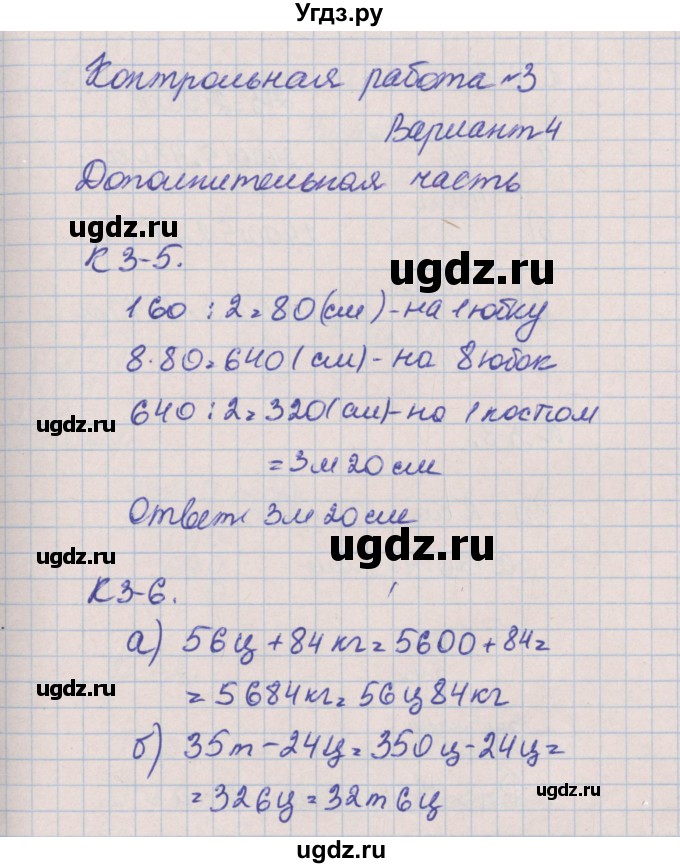 Угдз.ру
Контрольная работа №3
Вариант 4
Дополнительная часть
ugdz.ru
К 3-5.
ugdz.ru
160 : 2 = 80 (см) - на 1 юбку
8 · 80 = 640 (см) - на 8 юбок
ugdz.ru
640 : 2 = 320 (см) - на 1 костюм
= 3м 20 см
Ответ: 3м 20 см
ugdz.ru
ugdz.ru
К3-6.
а) 56ц + 84 кг = 5600 + 84 =
ugdz.ru
= 5684 кг = 56ц 84 кг
б) 35т - 24ц = 350ц - 24ц =
= 326ц = 32т 6ц
ugdz.ru
ugdz.ru